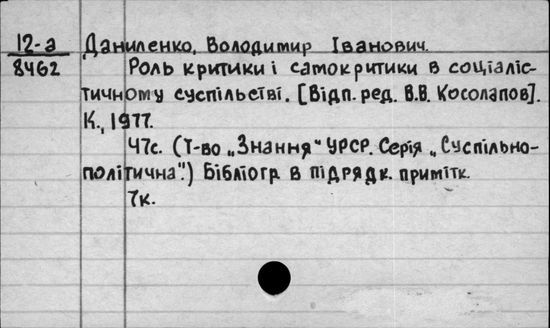 12-а
8462
Даниленко, Володимир Іванович.
Роль критики і самокритики в соціаліс-
тичному суспільстві. [Відп. ред. В.В. Косолапов].
К., 1977.
47с. (Т-во „Знання“ УРСР. Серія „Суспільно-
політична“.) Бібліогр. в підрядк. примітк.
7к.